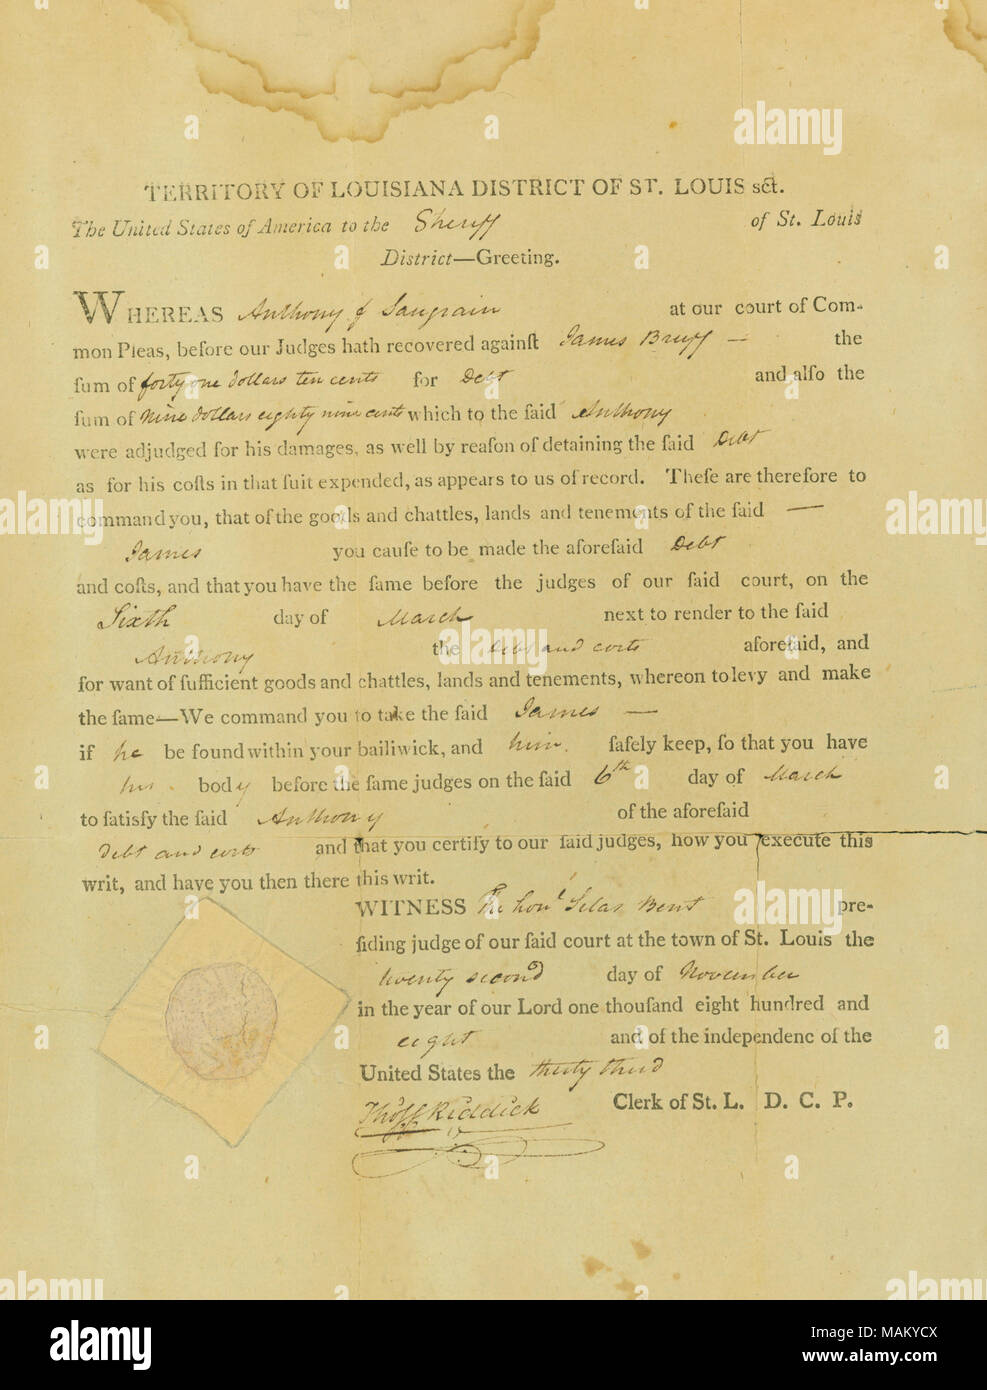 TERRITORY OF LOUISIANA DISTRICT OF ST. LOUIS sct.
The United States of America to the Sheriff of St. Louis
District—Greeting.
WHEREAS Anthony f Saugrain at our court of Com-
mon Pleas, before our Judges hath recovered againſt James Bruff — the
ſum of forty one dollars ten cents for Debt and alſo the
ſum of Nine dollars eighty nine cents which to the ſaid Anthony
were adjudged for his damages, as well by reaſon of detaining the ſaid Debt
as for his coſts in that ſuit expended, as appears to us of record. Theſe are therefore to
command you, that of the goods and chattles, lands and tenements of the ſaid —
James you cauſe to be made the aforeſaid Debt
and coſts, and that you have the ſame before the judges of our ſaid court, on the
Sixth day of March next to render to the ſaid
Anthony the Debt and costs aforeſaid, and
for want of ſufficient goods and chattles, lands and tenements, whereon to levy and make
the ſame—We command you to take the ſaid James —
if he be found within your bailiwick, and him. ſafely keep, ſo that you have
his body before the ſame judges on the ſaid 6th day of March
to ſatisfy the ſaid Anthony of the aforeſaid
debt and costs and that you certify to our ſaid judges, how you execute this
writ, and have you then there this writ.
WITNESS The honl Silas Bent pre-
ſiding judge of our ſaid court at the town of St. Louis the
twenty second day of November
in the year of our Lord one thouſand eight hundred and
eight and of the independenc of the
United States the thirty third
Thos F Riddick Clerk of St. L. D. C. P.
alamy
a
alamy
Image ID: MAKYCX
www.alamy.com